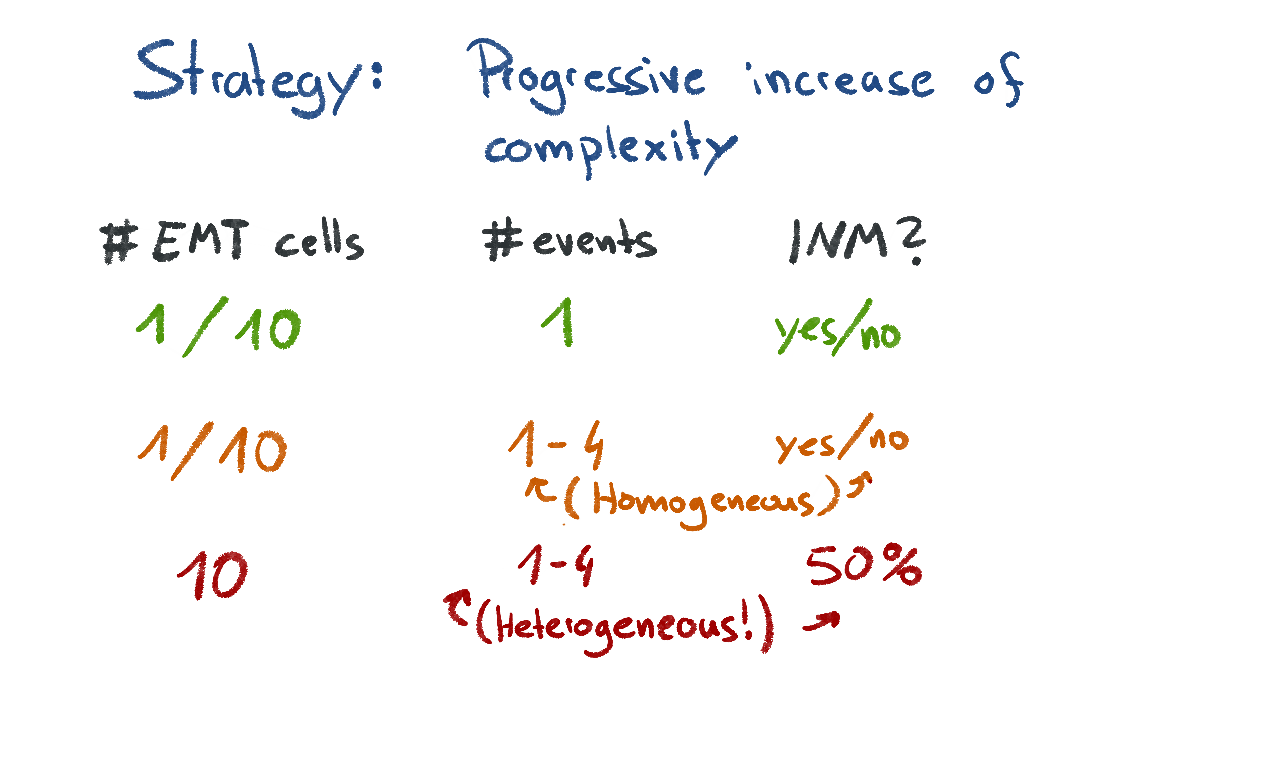 Strategy: Progressive increase of
complexity
# EMT cells # events INM?
1/10 1 yes/no
1/10 1-4 yes/no
(Homogeneous)
10 1-4 50%
(Heterogeneous!)